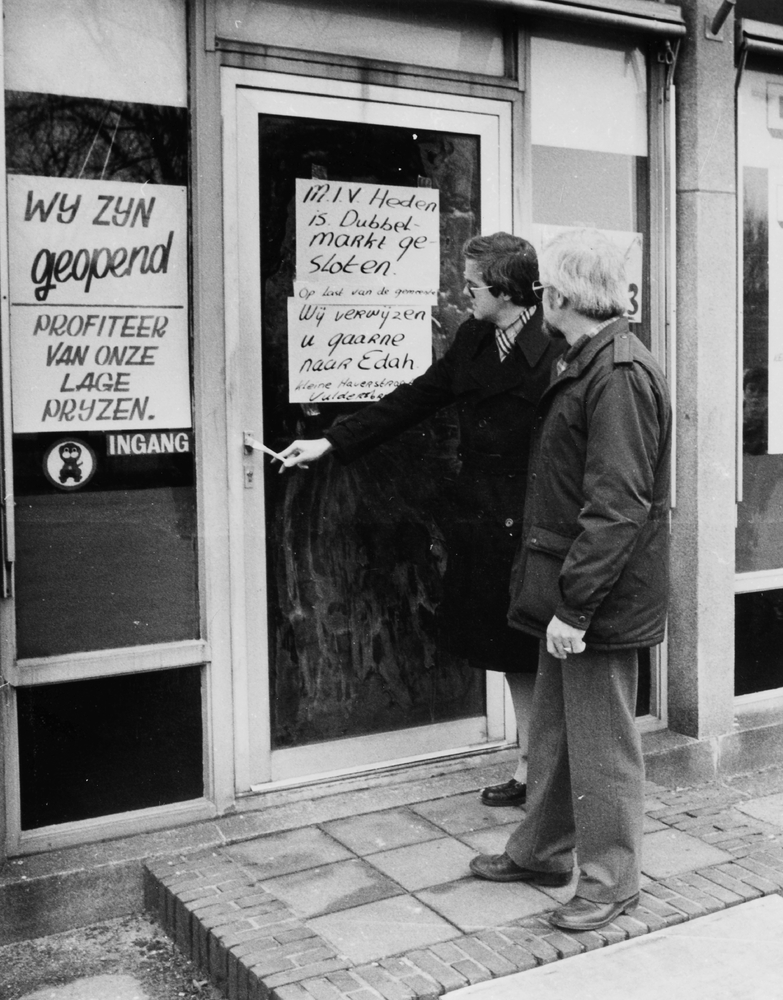 WY ZYN
geopend
PROFITEER
VAN ONZE
LAGE
PRYZEN.
INGANG
M.I.V. Heden
is Dubbel-
markt ge-
sloten.
Op last van de gemeente
Wij verwijzen
u gaarne
naar Edah.
kleine Haverstraat
3